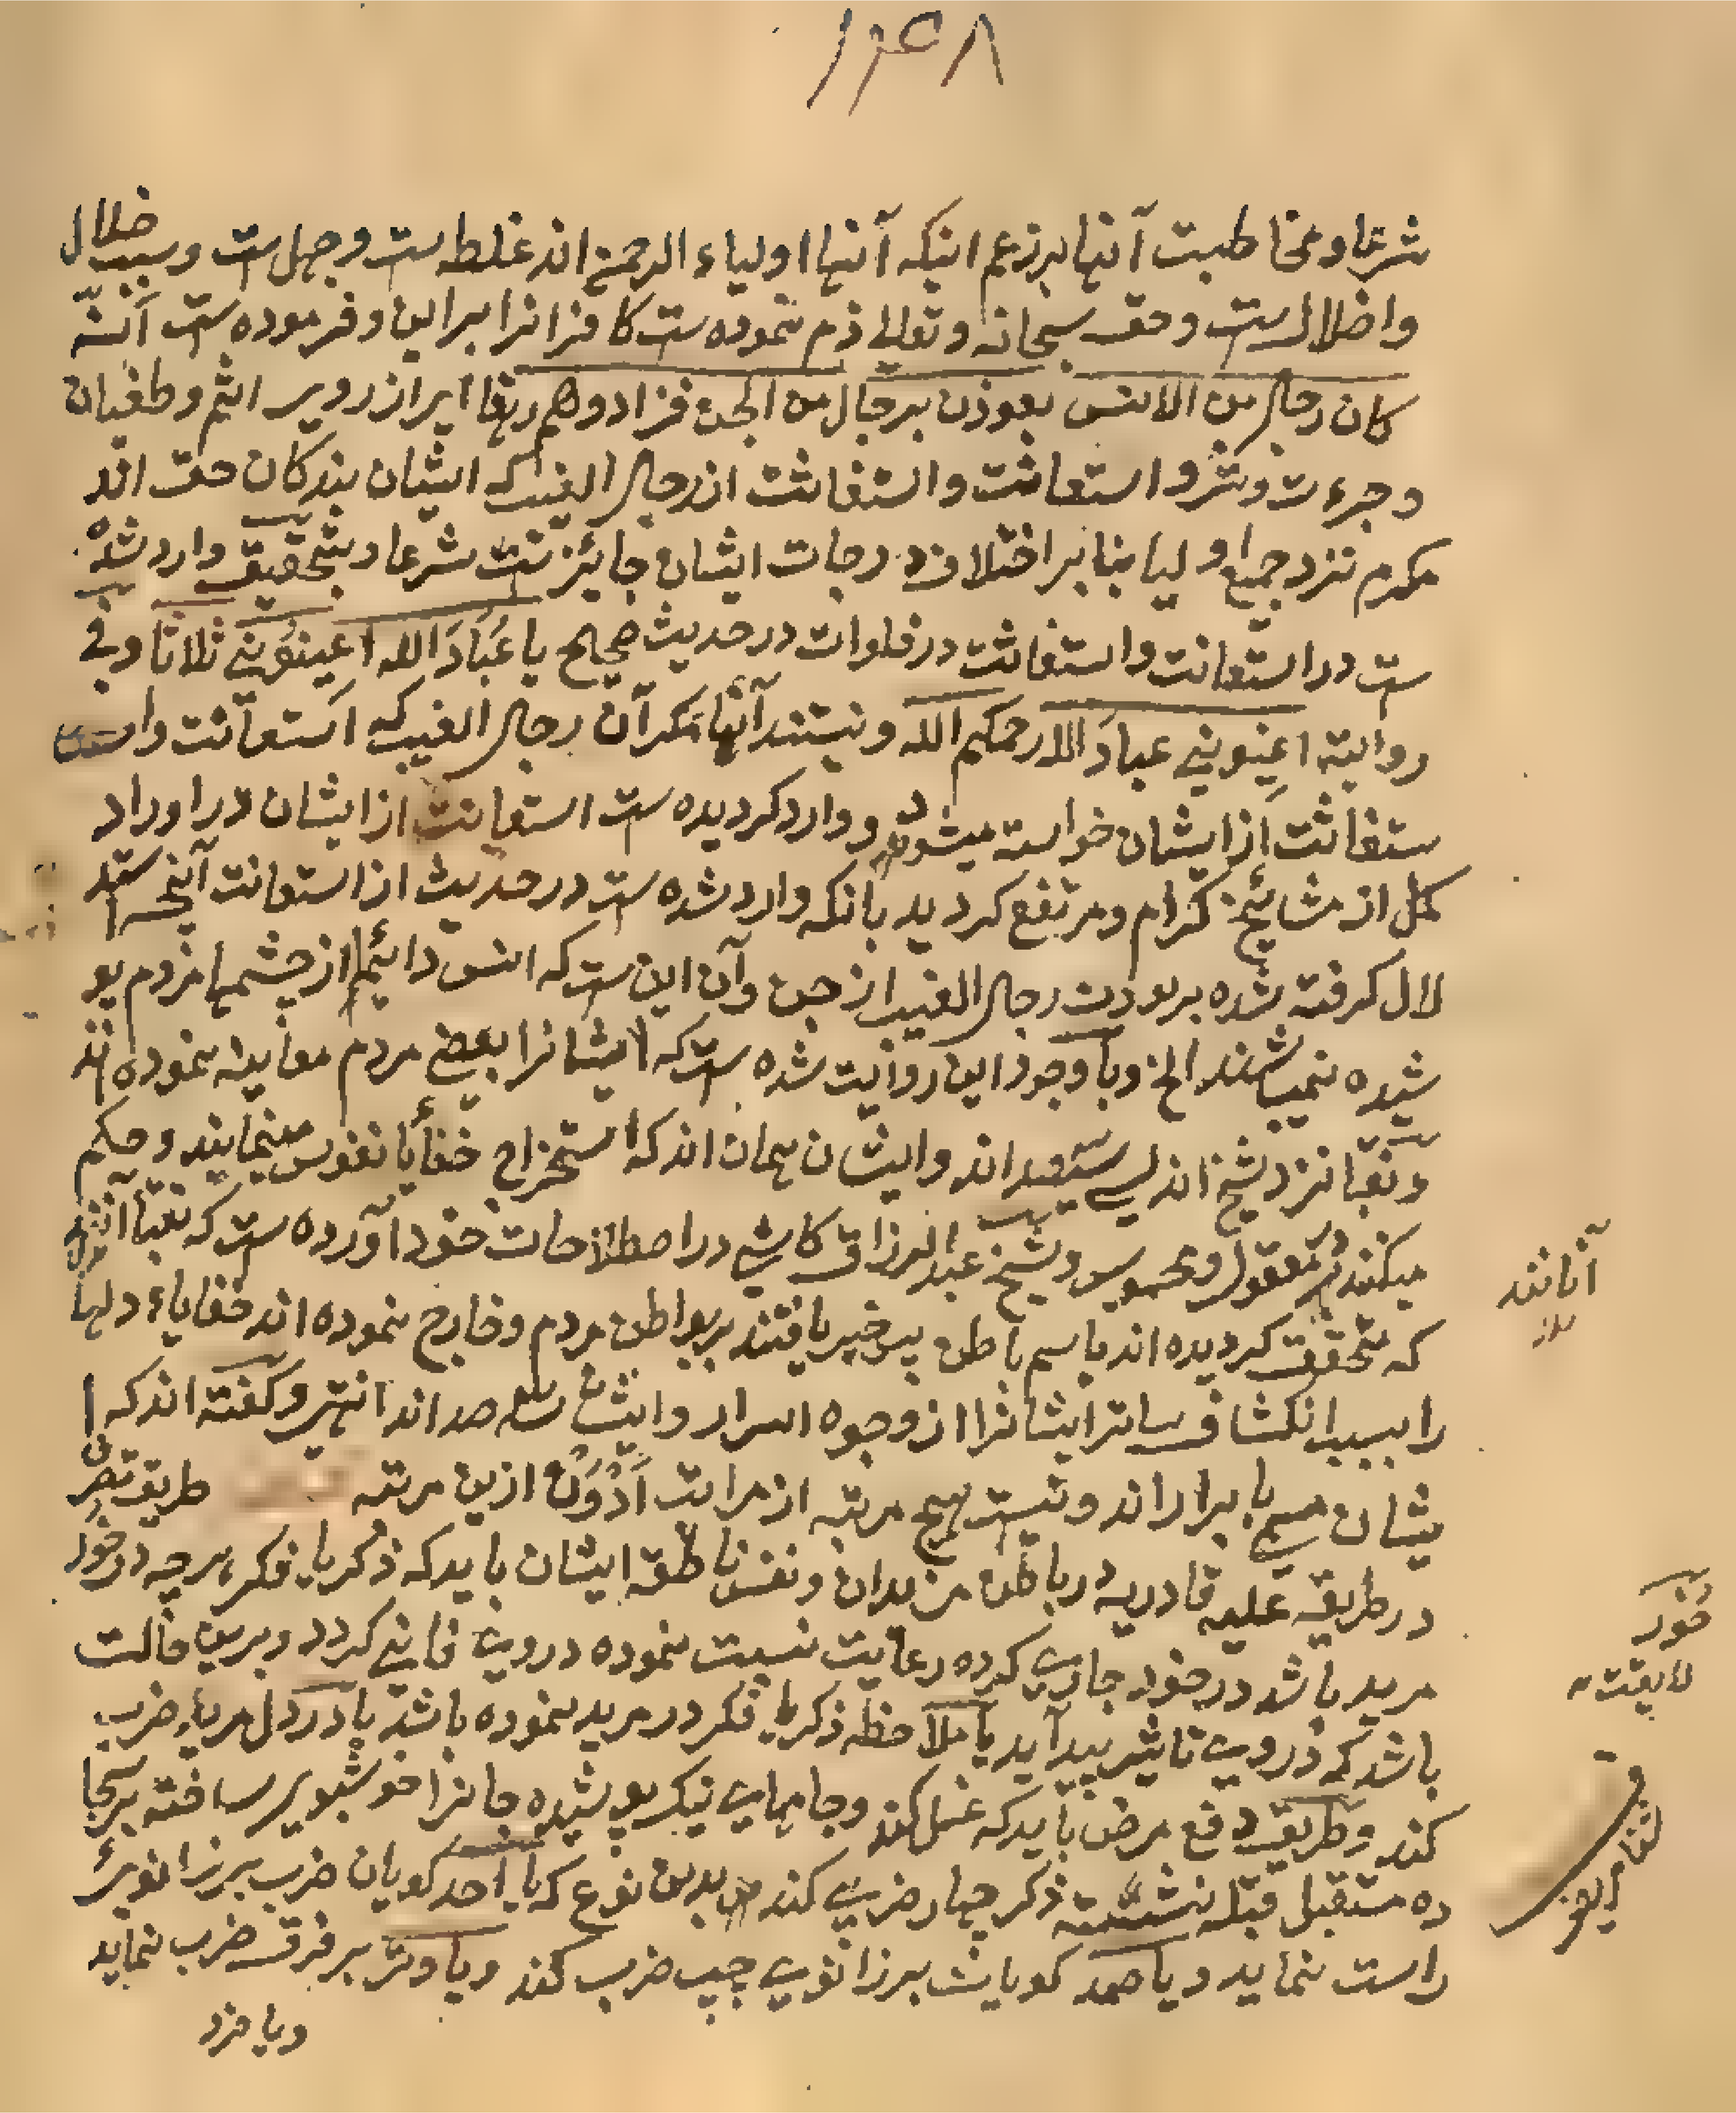 ۱۴۵۸
شرعا و مخاطبت آنها برزعم اینکه آنها اولیاء الرحمن اند غلط ست و جهل ست و سبب ضلال
و اضلال ست و حق سبحانه و تعالی ذم نموده ست کافرانرا براین و فرموده ست انّه
کان رجال من الانس یعوذن برجال من الجن فزادوهم رهقا ای از روی اثم و طغیان
و جرءت و شر و استعانت و استغاثت از رجال الغیب که ایشان بندکان حق اند
مکرم نزد جمیع اولیا بنابر اختلاف درجات ایشان جایئز ست شرعا و بتحقیق وارد شده
ست در استعانت و استغاثت در فلوات در حدیث صحیح یا عباد الله اعینونی ثلاثا و فی
روایته اعینونی عباد الله رحمکم الله و نیستند آنها مکر آن رجال الغیب که استعانت و ا
ستغاثت از ایشان خواسته میشود و وارد کردیده ست استعانت از ایشان در اوراد
کل از مشایخ کرام و مرتفع کردید بانکه وارد شده ست در حدیث از استعانت آنچه استد
لال کرفته شده بر بودن رجال الغیب از جن و آن این ست که انس دایم از چشمها مردم پو
شیده نمیباشند الخ و با وجود این روایت شده ست که ایشانرا بعضی مردم معاینه نموده اند
و نقبا نزد شیخ اند سی صد اند و ایشان همان اند که استخراج خفایا نفوس مینمایند و حکم
میکنند در معقول و محسوس و شیخ عبد الرزاق کاشی در اصطلاحات خود آورده ست که نقبا آنند
آنانند
که متحقق کردیده اند باسم باطن پس خبر یافتند بر بواطن مردم و خارج نموده اند خفایاء دلها
را بسبب انکشاف ساتر ایشانرا از وجوه اسرار و ایشان سه صد اند انتهی و کفته اند که ا
یشان مسمی با برار اند و نیست هیچ مرتبه از مراتب ادون ازین مرتبه طریق تصرف
در طریقه علیه قادریه در باطن مریدان و نفس ناطقه ایشان باید که ذکر یا فکر هرچه در خور
خور
لایقت
مرید باشد در خود جاری کرده رعایت نسبت نموده در وی فانی کردد و برین حالت
باشد که در وی تاثیر پیدا آید یا ملاحظه ذکر یا فکر در مرید نموده باشد یا در دل مرید ضرب
کند و طریق دفع مرض باید که غسل کند و جامهای نیک پوشیده جانرا خوشبوی ساخته بر سجا
ده مستقبل قبله نشسته ذکر چهار ضربی کند بدین نوع که یا احد کویان ضرب بر زانوی
راست نماید و یا صمد کویان بر زانوی چپ ضرب کند و یا وتر بر فرق ضرب نماید
و یا فرد